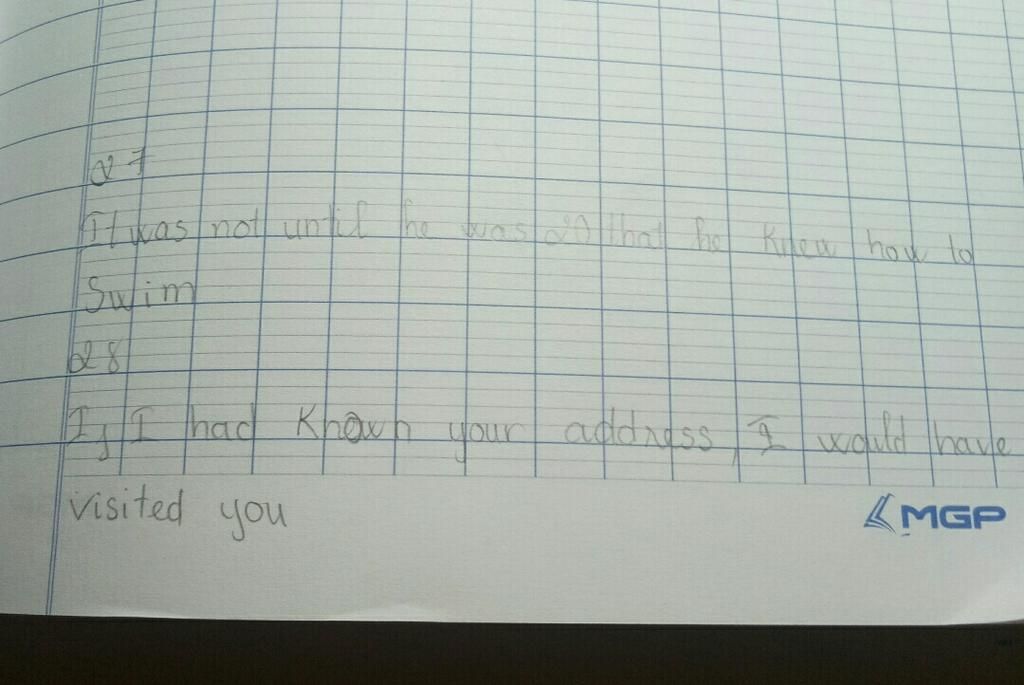 27
It was not until he was 20 that he knew how to
Swim
28
If I had known your address, I would have
visited you
MGP